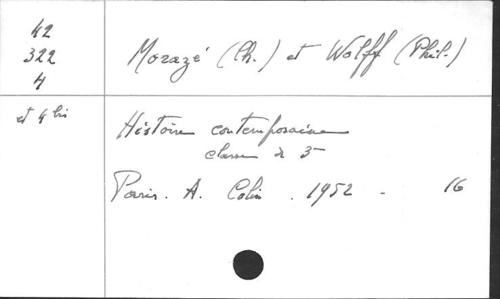 42
322
4
et 4 bis
Morazé (Ch.) et Wolff (Phil.)
Histoire contemporaine
classe de 3e
Paris. A. Colin . 1952 - 16